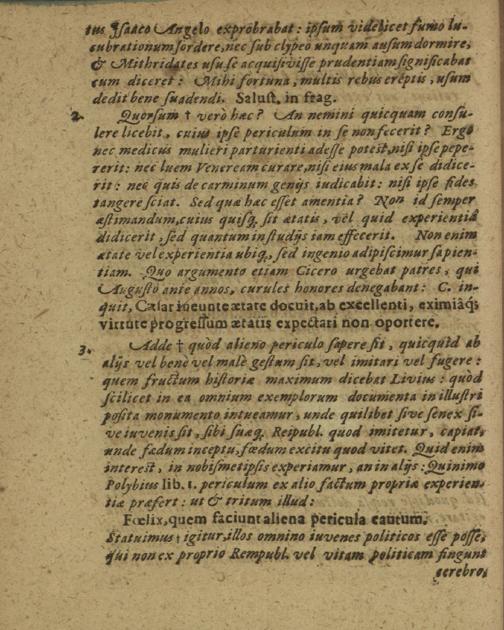 tus Isaaco Angelo exprobrabat: ipsum videlicet fumo lu-
cubrationum sordere, nec sub clypeo unquam ausum dormire,
& Mithridates usu se acquisivisse prudentiam significabat
cum diceret: Mihi fortuna, multis rebus ereptis, usum
dedit bene suadendi. Salust. in frag.
2. Quorsum † verò hæc? An nemini quicquam consu-
lere licebit, cuius ipse periculum in se non fecerit? Ergo
nec medicus mulieri parturienti adesse potest, nisi ipse pepe-
rerit: nec luem Veneream curare, nisi eius mala ex se didice-
rit: nec quis de carminum genijs iudicabit: nisi ipse fides
tangere sciat. Sed quæ hæc esset amentia? Non id semper
æstimandum, cuius quisq; sit ætatis, vel quid experientiâ
didicerit, sed quantum in studijs iam effecerit. Non enim
ætate vel experientia ubiq;, sed ingenio adipiscimur sapien-
tiam. Quo argumento etiam Cicero urgebat patres, qui
Augusto ante annos, curules honores denegabant: C. in-
quit, Cæsar ineunte ætate docuit, ab excellenti, eximiâq;
virtute progressum ætatis expectari non oportere.
3. Adde † quòd alieno periculo sapere sit, quicquid ab
alijs vel benè vel malè gestum sit, vel imitari vel fugere:
quem fructum historiæ maximum dicebat Livius: quòd
scilicet in ea omnium exemplorum documenta in illustri
posita monumento intueamur, unde quilibet sive senex si-
ve iuvenis sit, sibi suæq; Reipubl. quod imitetur, capiat,
unde fœdum inceptu, fœdum exitu quod vitet. Quid enim
interest, in nobismetipsis experiamur, an in alijs: Quinimo
Polybius lib. 1. periculum ex alio factum propriæ experien-
tiæ præfert: ut & tritum illud:
Fœlix, quem faciunt aliena pericula cautum.
Statuimus † igitur, illos omnino iuvenes politicos esse posse,
qui non ex proprio Rempubl. vel vitam politicam fingunt
cerebro,